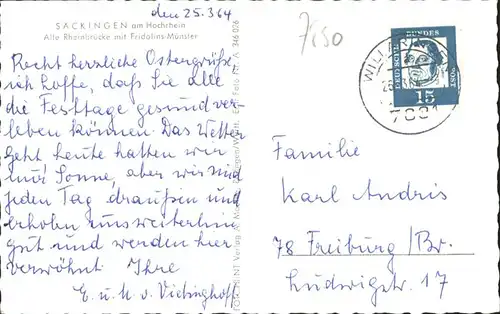 SÄCKINGEN am Hochrhein
Alte Rheinbrücke mit Fridolins-Münster
den 25.3.64
Recht herzliche Ostergrüße,
ich hoffe, daß Sie alle
die Festtage gesund ver-
leben können. Das Wetter
geht heute hatten wir
nur Sonne, aber wir sind
jeden Tag draußen und
erholen uns weiterhin
gut und werden hier
verwöhnt. Ihre
E. u. H. v. Vietinghoff
7,50
DEUTSCHE BUNDESPOST
15
7881
Familie
Karl Andris
78 Freiburg/Br.
Ludwigstr. 17